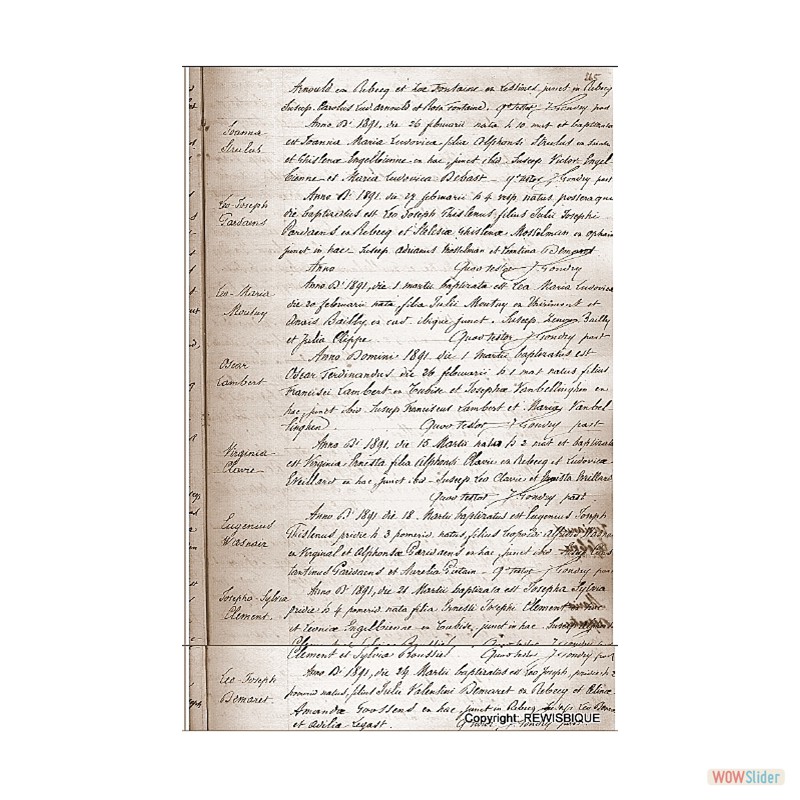 265
Arnould ex Rebecq et Lea Fontaine ex Lettines, junct in Rebecq
Suscep. Carolus Lud. Arnould et Rosa Fontaine. qd testor J. Gondry past
Joanna Struelus
Anno Di 1891, die 26 februarii nata h 10 mat et baptizata
est Joanna Maria Ludovica filia Alphonsi Struelus ex
et Ghislenæ Engelbienne ex hac, junct ibid. Suscep Victor Engel
bienne et Maria Ludovica Debast - qd testor J Gondry past
Leo-Joseph Paridaens
Anno Di 1891 die 27 februarii h 4 vesp natus postera que
die baptizatus est Leo Joseph Ghislenus filius Julii Josephi
Paridaens ex Rebecq et Ghislenæ Mosselman ex Ophain
junct in hac. Suscep Adrianus Mosselman et Leontina Demaret
Anno Quod testor J Gondry
Lea-Maria Moutuy
Anno Di 1891, die 1 martii baptizata est Lea Maria Ludovica
die 20 februarii nata filia Julii Moutuy ex et
Anais Bailly ex ead ibique junct. Suscep. Bailly
et Julia Clippe Quod testor J Gondry past
Oscar Lambert
Anno Domini 1891 die 1 martii baptizatus est
Oscar Ferdinandus die 26 februarii h 1 mat natus filius
Francisci Lambert ex Tubise et Josephæ Vanbellinghen ex
hac junct ibid Suscep Franciscus Lambert et Maria Vanbel
linghen. Quod testor J Gondry past
Virginia Clavie
Anno Di 1891, die 15 Martii nata h 2 mat et baptizata
est Virginia Ernesta filia Alphonsi Clavie ex Rebecq et Ludovicæ
Eveillard ex hac, junct ibid - Suscep Leo Clavie et
Quod testor J Gondry past.
Eugenius Wasnair
Anno Di 1891 die 18 Martii baptizatus est Eugenius Joseph
Ghislenus pridie h 3 pomerid. natus filius Leopoldi Alfredi Wasnair
ex Virginal et Alphonsæ Paridaens ex hac junct ibid
tantinus Paridaens et Aurelia - qd testor J Gondry past
Josepha-Sylvia Clement
Anno Di 1891, die 21 Martii baptizata est Josepha Sylvia
pridie h 4 pomerid nata filia Ernesti Josephi Clement
et Leoniæ Engelbienne ex Tubise, junct in hac Suscep
Clement et Sylvia Roussial Quod testor J Gondry past
Leo-Joseph Demaret
Anno Di 1891, die 24 Martii baptizatus est Leo Joseph, pridie h 2
pomerid natus, filius Julii Valentini Demaret ex Rebecq et
Amandæ Goossens ex hac junct in Rebecq Leo
et Odilia Legast. Quod testor J Gondry past
Copyright: REWISBIQUE
WOWSlider